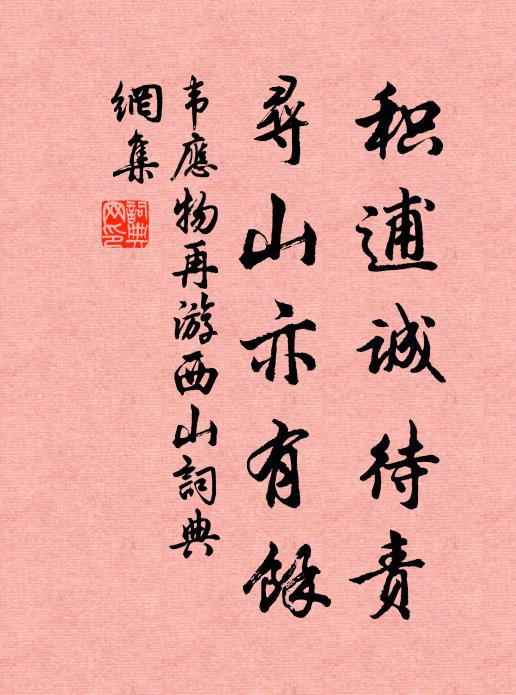 积逋诚待责
寻山亦有馀
韦應物再游西山詞典
網集
詞典網印